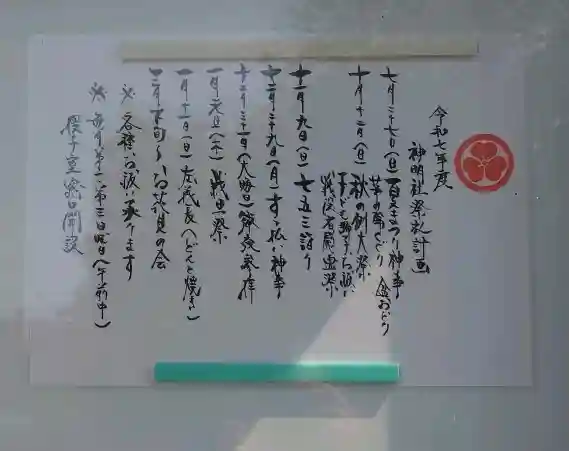 令和七年度
神明社祭礼計画
七月二十七日(日)百矢まつり神事
茅の輪くぐり 盆おどり
十月十二日(日)秋の例大祭
子ども踊り お祓い
戦没者慰霊祭
十一月九日(日)七五三詣り
十二月二十九日(月)すす払い神事
十二月三十一日(大晦日)除夜参拝
一月元旦(木)歳旦祭
一月十一日(日)左義長(どんど焼き)
三月下旬〜お花見の会
※各種お祓い承ります
※毎月第一、第三日曜日(午前中)
授与室窓口開設